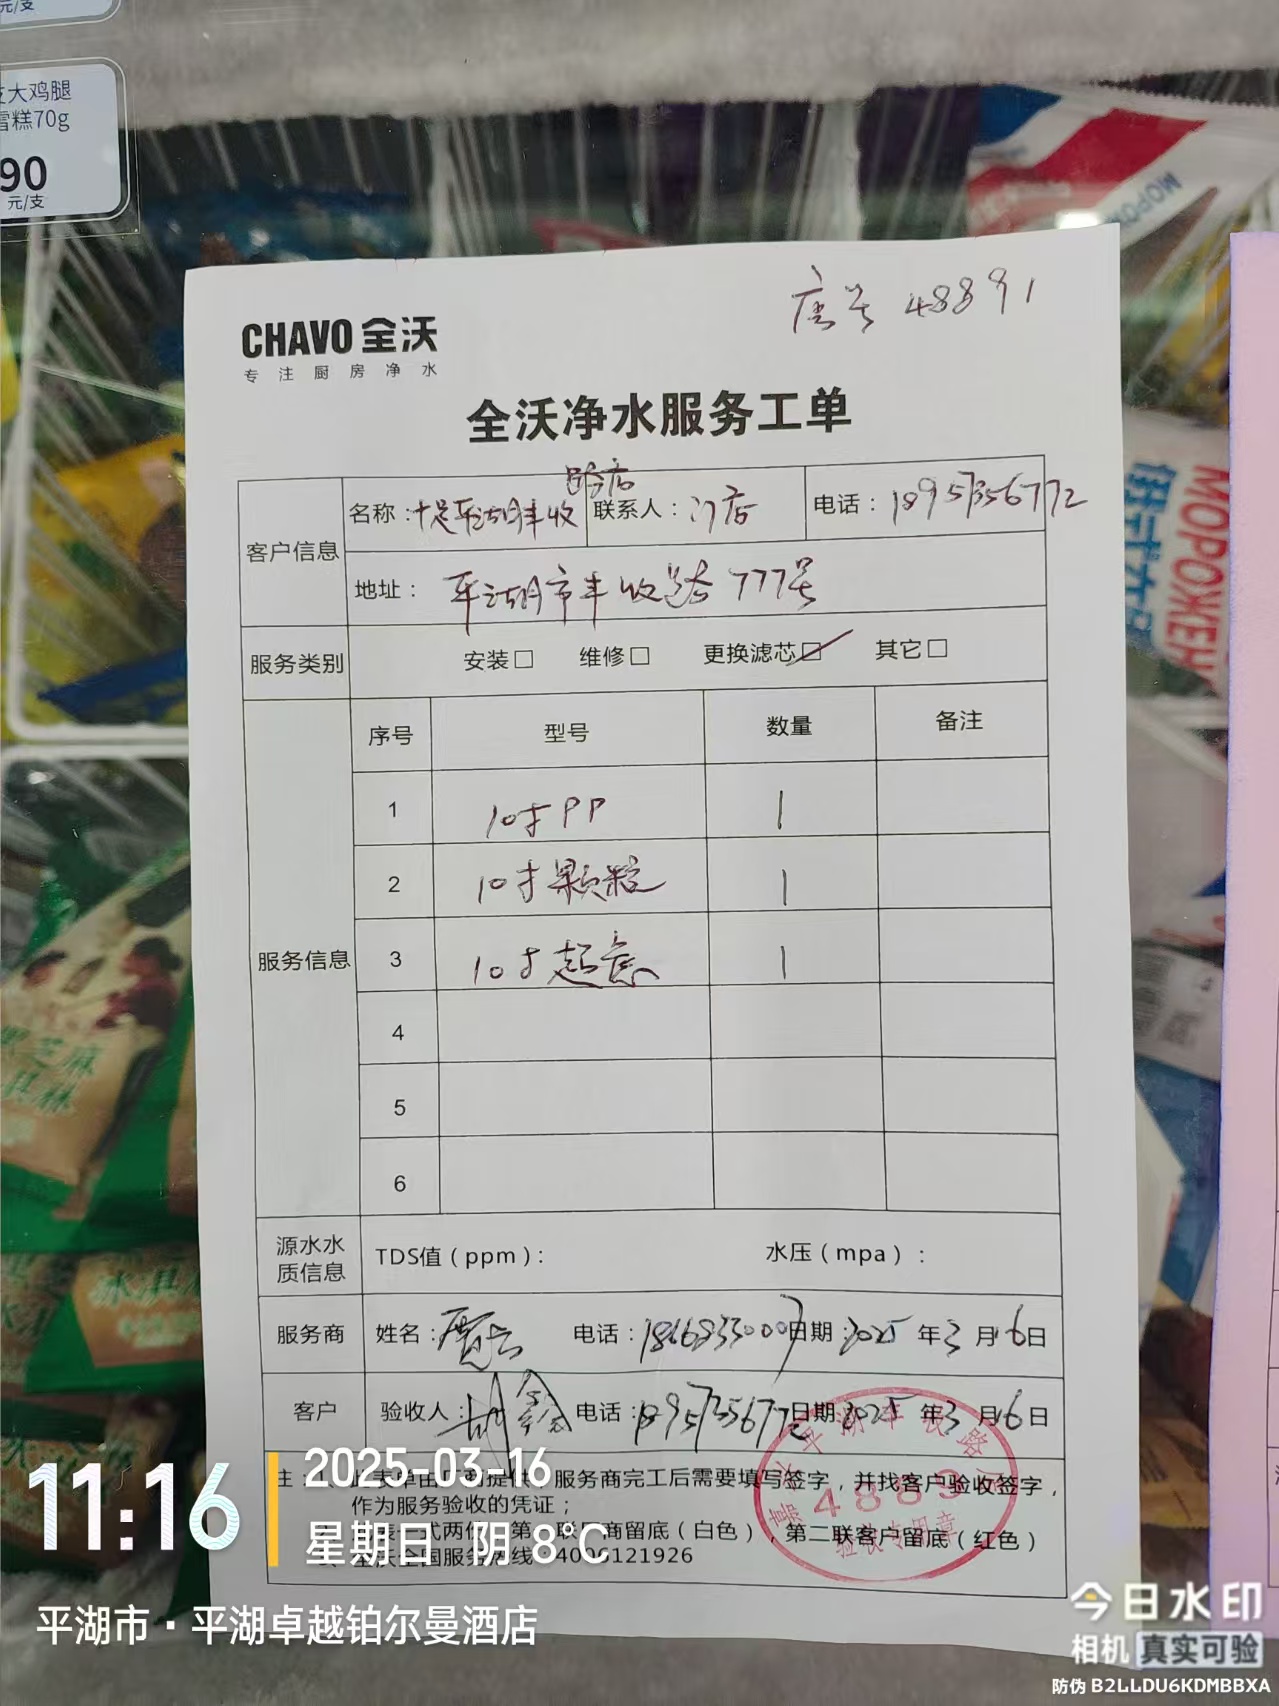 元/支
大鸡腿
雪糕70g
90
元/支
店号 48891
CHAVO 全沃
专注厨房净水
全沃净水服务工单
客户信息
名称：十足平湖丰收路店 联系人：门店 电话：18957356772
地址：平湖市丰收路777号
服务类别 安装□ 维修□ 更换滤芯☑ 其它□
服务信息
序号 型号 数量 备注
1 10寸PP 1
2 10寸颗粒 1
3 10寸超滤 1
4
5
6
源水水质信息 TDS值（ppm）： 水压（mpa）：
服务商 姓名： 电话： 日期：2025年3月16日
客户 验收人：胡鑫 电话：18957356772 日期：2025年3月16日
注：
此表单由厂商提供，服务商完工后需要填写签字，并找客户验收签字，
作为服务验收的凭证；
联厂商留底（白色），第二联客户留底（红色）
全沃全国服务热线 4006121926
平湖丰收路
4889
验收专用章
11:16
2025-03-16
星期日 阴 8°C
平湖市·平湖卓越铂尔曼酒店
今日水印
相机 真实可验
防伪 B2LLDU6KDMBBXA
МОРОЖЕН
俄式
冰淇